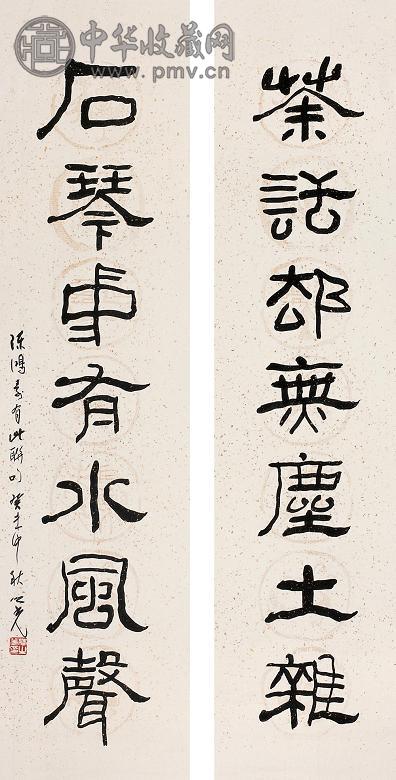 中华收藏网
www.pmv.cn
茶話却無塵土雜
石琴有水風聲
陳鴻壽有此聯句癸未中秋